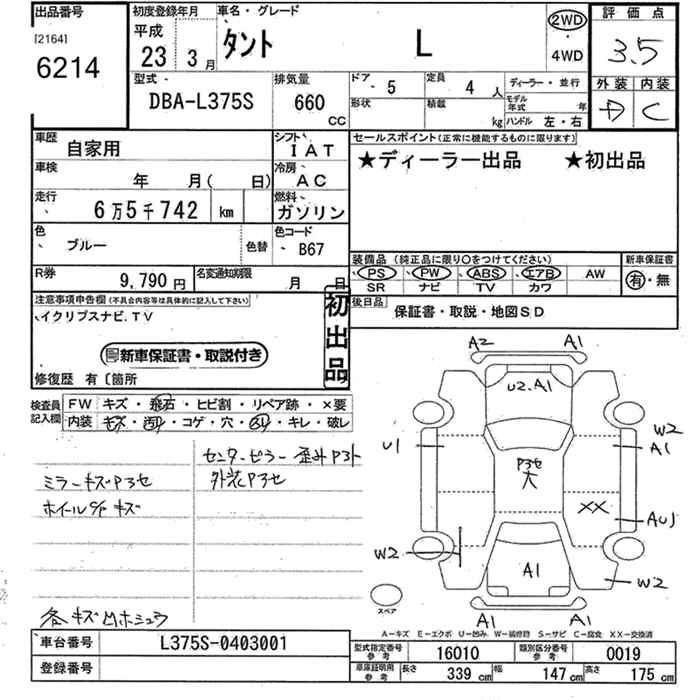 出品番号
[2164]
6214
初度登録年月
平成
23 3 月
車名・グレード
タント L
2WD
4WD
評価点
3.5
外装 内装
D C
型式
DBA-L375S
排気量
660
CC
ドア 5
定員 4 人
形状
積載 kg
ディーラー・並行
モデル年式 年
ハンドル 左・右
車歴
自家用
シフト
IAT
車検
年 月( 日)
冷房
AC
走行
6万5千742 km
燃料
ガソリン
色
ブルー
色替
色コード
B67
R券
9,790円
名変通知期限
月 日
セールスポイント(正常に機能するものに限ります)
★ディーラー出品 ★初出品
装備品(純正品に限り○をつけてください)
PS PW ABS エアB AW
SR ナビ TV カワ
新車保証書
有・無
後日品
保証書・取説・地図SD
注意事項申告欄(不具合内容等は具体的に記入して下さい)
イクリプスナビ.TV
新車保証書・取説付き
初出品
修復歴 有〔箇所
検査員記入欄
FW キズ・飛石・ヒビ割・リペア跡・×要
内装 キズ・汚れ・コゲ・穴・ ・キレ・破レ
センターピラー 歪み
ミラーキズ
ホイール キズ
各キズ凹ホシュウ
車台番号
L375S-0403001
登録番号
A2 A1
U2.A1
U1
W2
A1
XX
AU1
W2
A1
W2
A1 A1
スペア
A—キズ E—エクボ U—凹み W—補修跡 S—サビ C—腐食 XX—交換済
型式指定番号 参考 16010
類別区分番号 参考 0019
車庫証明用 参考
長さ 339 cm
幅 147 cm
高さ 175 cm